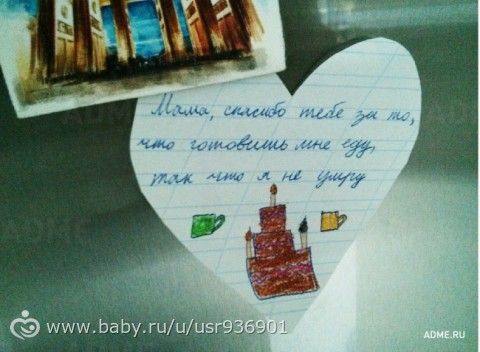 Мама, спасибо тебе за то,
что готовишь мне еду,
так что я не умру
www.baby.ru/u/usr936901
ADME.RU